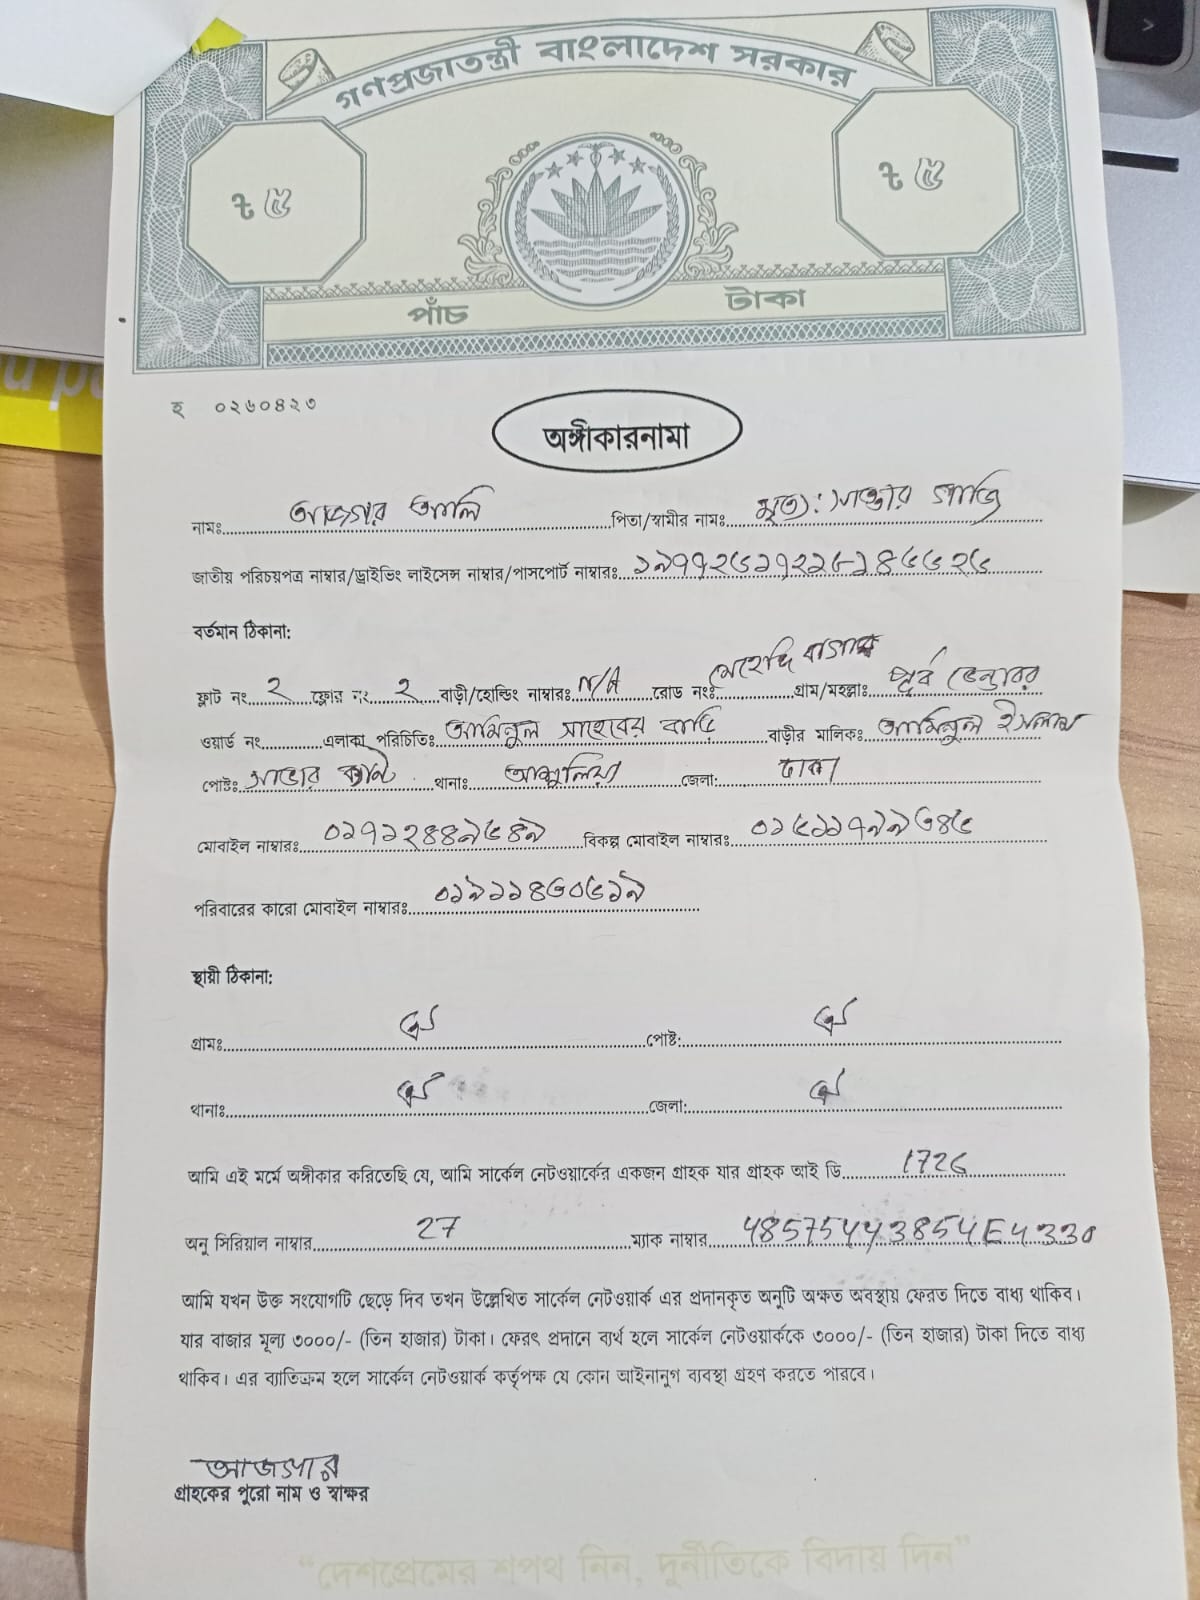 গণপ্রজাতন্ত্রী বাংলাদেশ সরকার
৳ ৫ ৳ ৫
পাঁচ টাকা
হ ০২৬০৪২৩
অঙ্গীকারনামা
নামঃ আজগর আলি পিতা/স্বামীর নামঃ মৃত:
জাতীয় পরিচয়পত্র নাম্বার/ড্রাইভিং লাইসেন্স নাম্বার/পাসপোর্ট নাম্বারঃ
বর্তমান ঠিকানা:
ফ্লাট নং ২ ফ্লোর নং ২ বাড়ী/হোল্ডিং নাম্বারঃ N/A রোড নংঃ মেহেদি বাগান গ্রাম/মহল্লাঃ পূর্ব
ওয়ার্ড নং এলাকা পরিচিতিঃ আমিনুল সাহেবের বাড়ি বাড়ীর মালিকঃ আমিনুল ইসলাম
পোষ্টঃ সাভার থানাঃ আশুলিয়া জেলা: ঢাকা
মোবাইল নাম্বারঃ ০১৭১২৪৪৯৫৪৯ বিকল্প মোবাইল নাম্বারঃ ০১৫১১৭৯৯৩৪৫
পরিবারের কারো মোবাইল নাম্বারঃ ০১৯১১৪৩০৫১৯
স্থায়ী ঠিকানা:
গ্রামঃ ঐ পোষ্ট: ঐ
থানাঃ ঐ জেলা: ঐ
আমি এই মর্মে অঙ্গীকার করিতেছি যে, আমি সার্কেল নেটওয়ার্কের একজন গ্রাহক যার গ্রাহক আই ডি 1726
অনু সিরিয়াল নাম্বার 27 ম্যাক নাম্বার 485754443854E4330
আমি যখন উক্ত সংযোগটি ছেড়ে দিব তখন উল্লেখিত সার্কেল নেটওয়ার্ক এর প্রদানকৃত অনুটি অক্ষত অবস্থায় ফেরত দিতে বাধ্য থাকিব।
যার বাজার মূল্য ৩০০০/- (তিন হাজার) টাকা। ফেরৎ প্রদানে ব্যর্থ হলে সার্কেল নেটওয়ার্ককে ৩০০০/- (তিন হাজার) টাকা দিতে বাধ্য
থাকিব। এর ব্যাতিক্রম হলে সার্কেল নেটওয়ার্ক কর্তৃপক্ষ যে কোন আইনানুগ ব্যবস্থা গ্রহণ করতে পারবে।
আজগার
গ্রাহকের পুরো নাম ও স্বাক্ষর
“দেশপ্রেমের শপথ নিন, দুর্নীতিকে বিদায় দিন”